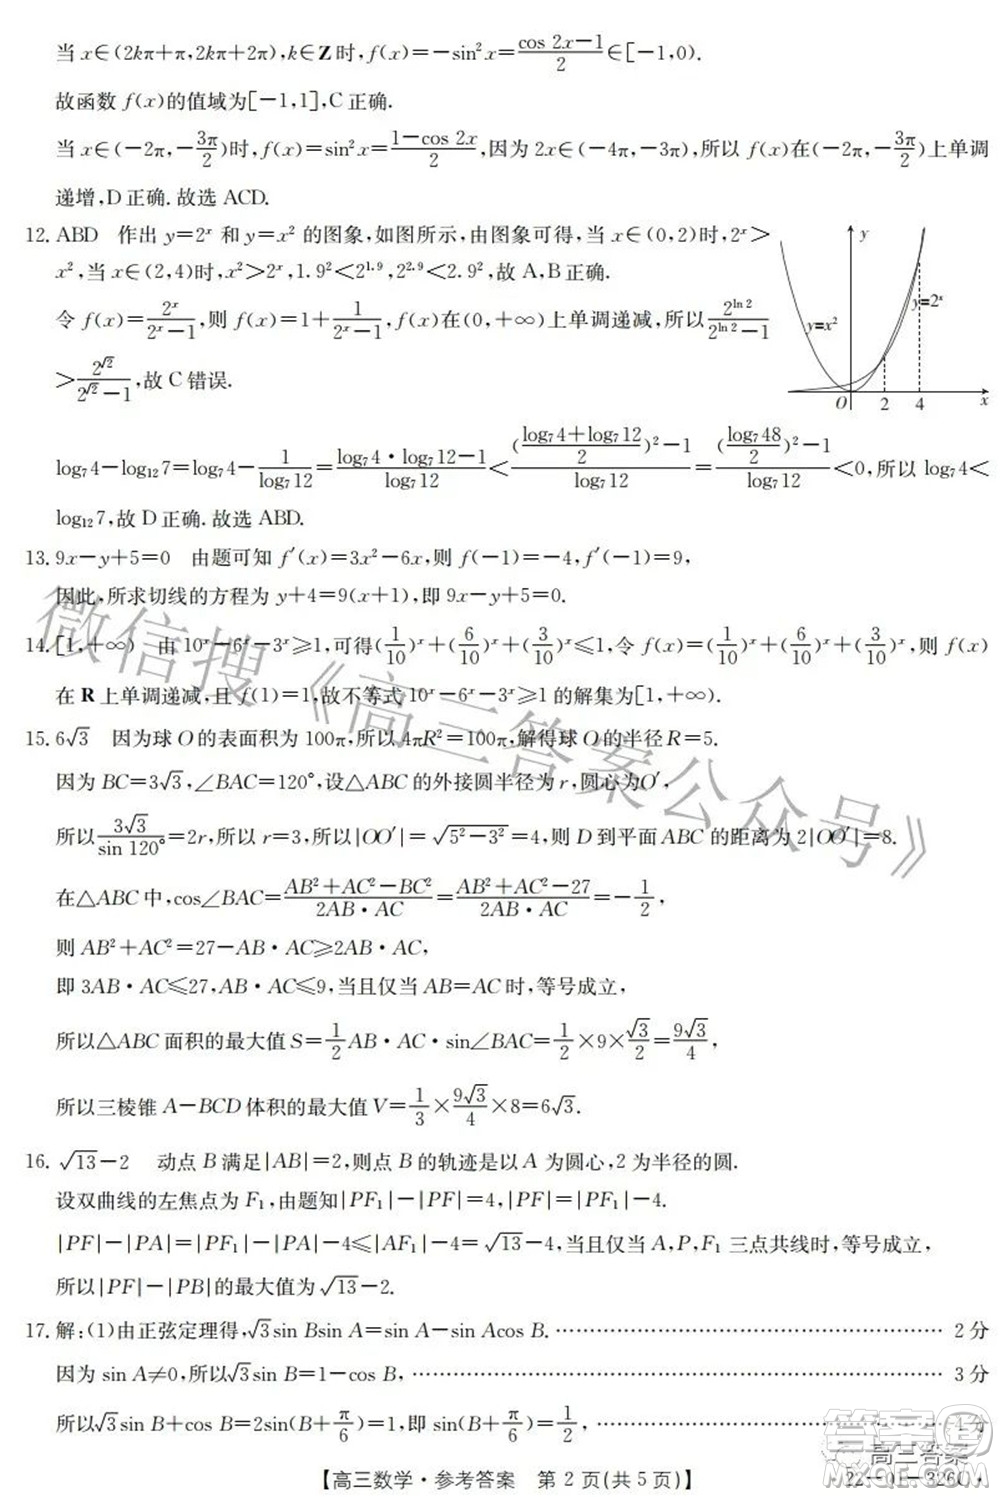 当 x∈(2kπ+π,2kπ+2π),k∈Z时,f(x)=-sin²x=(cos 2x-1)/2∈[-1,0).
故函数 f(x)的值域为[-1,1],C 正确.
当 x∈(-2π,-3π/2)时,f(x)=sin²x=(1-cos 2x)/2,因为 2x∈(-4π,-3π),所以 f(x)在(-2π,-3π/2)上单调
递增,D 正确.故选 ACD.
12. ABD 作出 y=2^x 和 y=x² 的图象,如图所示,由图象可得,当 x∈(0,2)时,2^x>
x²,当 x∈(2,4)时,x²>2^x,1.9²<2^1.9,2^2.9<2.9²,故 A,B 正确.
令 f(x)=2^x/(2^x-1),则 f(x)=1+1/(2^x-1),f(x)在(0,+∞)上单调递减,所以 2^(ln 2)/(2^(ln 2)-1)
>2^√2/(2^√2-1),故 C 错误.
y
y=x²
y=2^x
O 2 4 x
log₇4-log₁₂7=log₇4-1/log₇12=(log₇4·log₇12-1)/log₇12<(((log₇4+log₇12)/2)²-1)/log₇12=((log₇48/2)²-1)/log₇12<0,所以 log₇4<
log₁₂7,故 D 正确.故选 ABD.
13. 9x-y+5=0 由题可知 f′(x)=3x²-6x,则 f(-1)=-4,f′(-1)=9,
因此,所求切线的方程为 y+4=9(x+1),即 9x-y+5=0.
14. [1,+∞) 由 10^x-6^x-3^x≥1,可得(1/10)^x+(6/10)^x+(3/10)^x≤1,令 f(x)=(1/10)^x+(6/10)^x+(3/10)^x,则 f(x)
在 R 上单调递减,且 f(1)=1,故不等式 10^x-6^x-3^x≥1 的解集为[1,+∞).
15. 6√3 因为球 O 的表面积为 100π,所以 4πR²=100π,解得球 O 的半径 R=5.
因为 BC=3√3,∠BAC=120°,设△ABC 的外接圆半径为 r,圆心为O′,
所以 3√3/sin 120°=2r,所以 r=3,所以|OO′|=√(5²-3²)=4,则 D 到平面 ABC 的距离为 2|OO′|=8.
在△ABC 中,cos∠BAC=(AB²+AC²-BC²)/(2AB·AC)=(AB²+AC²-27)/(2AB·AC)=-1/2,
则 AB²+AC²=27-AB·AC≥2AB·AC,
即 3AB·AC≤27,AB·AC≤9,当且仅当 AB=AC 时,等号成立,
所以△ABC 面积的最大值 S=1/2 AB·AC·sin∠BAC=1/2×9×√3/2=9√3/4,
所以三棱锥 A-BCD 体积的最大值 V=1/3×9√3/4×8=6√3.
16. √13-2 动点 B 满足|AB|=2,则点 B 的轨迹是以 A 为圆心,2 为半径的圆.
设双曲线的左焦点为 F₁,由题知|PF₁|-|PF|=4,|PF|=|PF₁|-4.
|PF|-|PA|=|PF₁|-|PA|-4≤|AF₁|-4=√13-4,当且仅当 A,P,F₁ 三点共线时,等号成立,
所以|PF|-|PB|的最大值为 √13-2.
17. 解:(1)由正弦定理得,√3sin Bsin A=sin A-sin Acos B. …… 2 分
因为 sin A≠0,所以√3sin B=1-cos B, …… 3 分
所以√3sin B+cos B=2sin(B+π/6)=1,即 sin(B+π/6)=1/2, …… 4 分
【高三数学·参考答案 第 2 页(共 5 页)】
22-01-326C
微信搜《高三答案公众号》
高三答案
答案圈